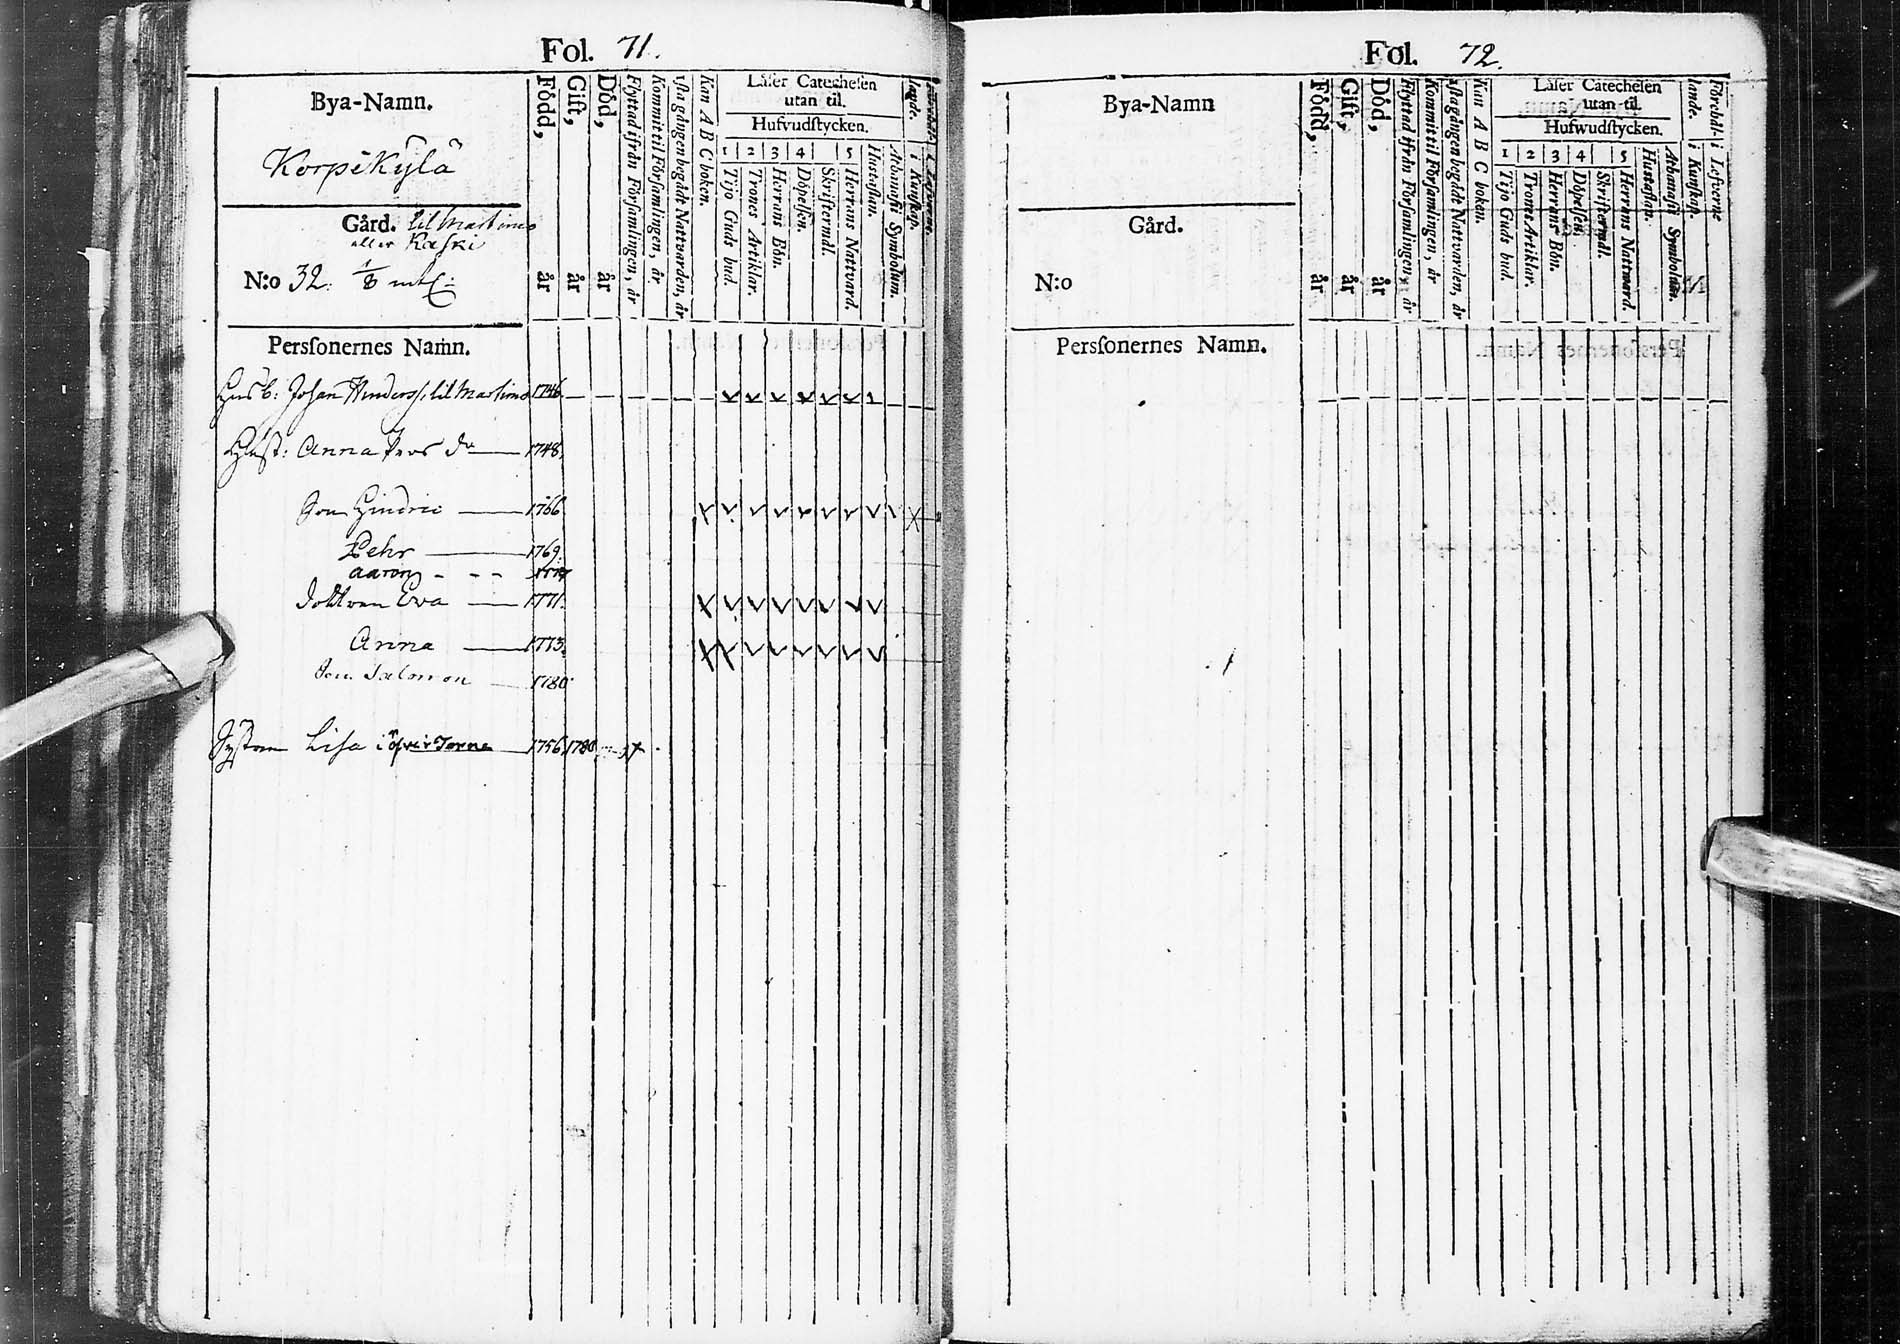 Fol. 71.
Bya-Namn.
Korpikylä
Gård. Lil Martimo
eller Kaski
N:o 32. 1/8 mtl:
Född, år
Gift, år
Död, år
Flyttad ifrån Församlingen, år
Kommit til Församlingen, år
1sta gången begådt Nattvarden, år
Kan A B C boken.
Läser Catechesen
utan til.
Hufvudstycken.
1 2 3 4 5
Tijo Guds bud.
Trones Artiklar.
Herrans Bön.
Döpelsen.
Skriftermål.
Herrans Nattvard.
Hustaflan.
Athanasii Symbolum.
i Kunskap.
Personernes Namn.
Husb: Johan Hinderss. lil Martimo 1746.
Hust: Anna Pers dr 1748.
Son Hindric 1766.
Pehr 1769.
Aaron
Dottren Eva 1771.
Anna 1773.
Son Salomon 1780
Systern Lisa i öfver Torne 1756. 1780
Fol. 72.
Bya-Namn
Gård.
N:o
Född, år
Gift, år
Död, år
Flyttad ifrån Församlingen, år
Kommit til Församlingen, år
1sta gången begådt Nattvarden, år
Kan A B C boken.
Läser Catechesen
utan til
Hufwudstycken.
1 2 3 4 5
Tijo Guds bud.
Trones Artiklar.
Herrans Bön.
Döpelsen.
Skriftermål.
Herrans Nattward.
Hustaflan.
Athanasii Symbolum.
i Kunskap.
i Lefverne
Personernes Namn.